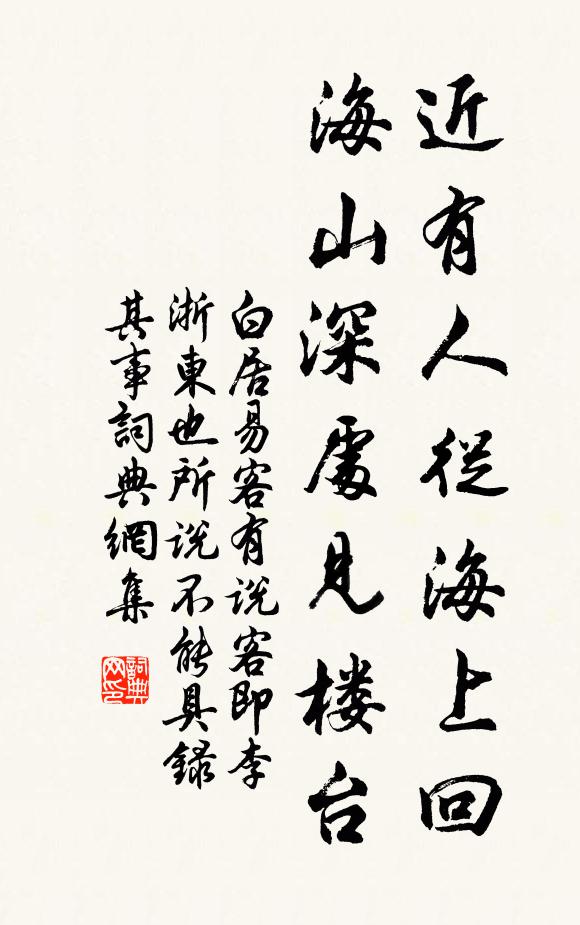 近有人從海上回
海山深處見楼台
白居易客有说客即李
浙東也所说不能具録
其事詞典網集
詞典网印